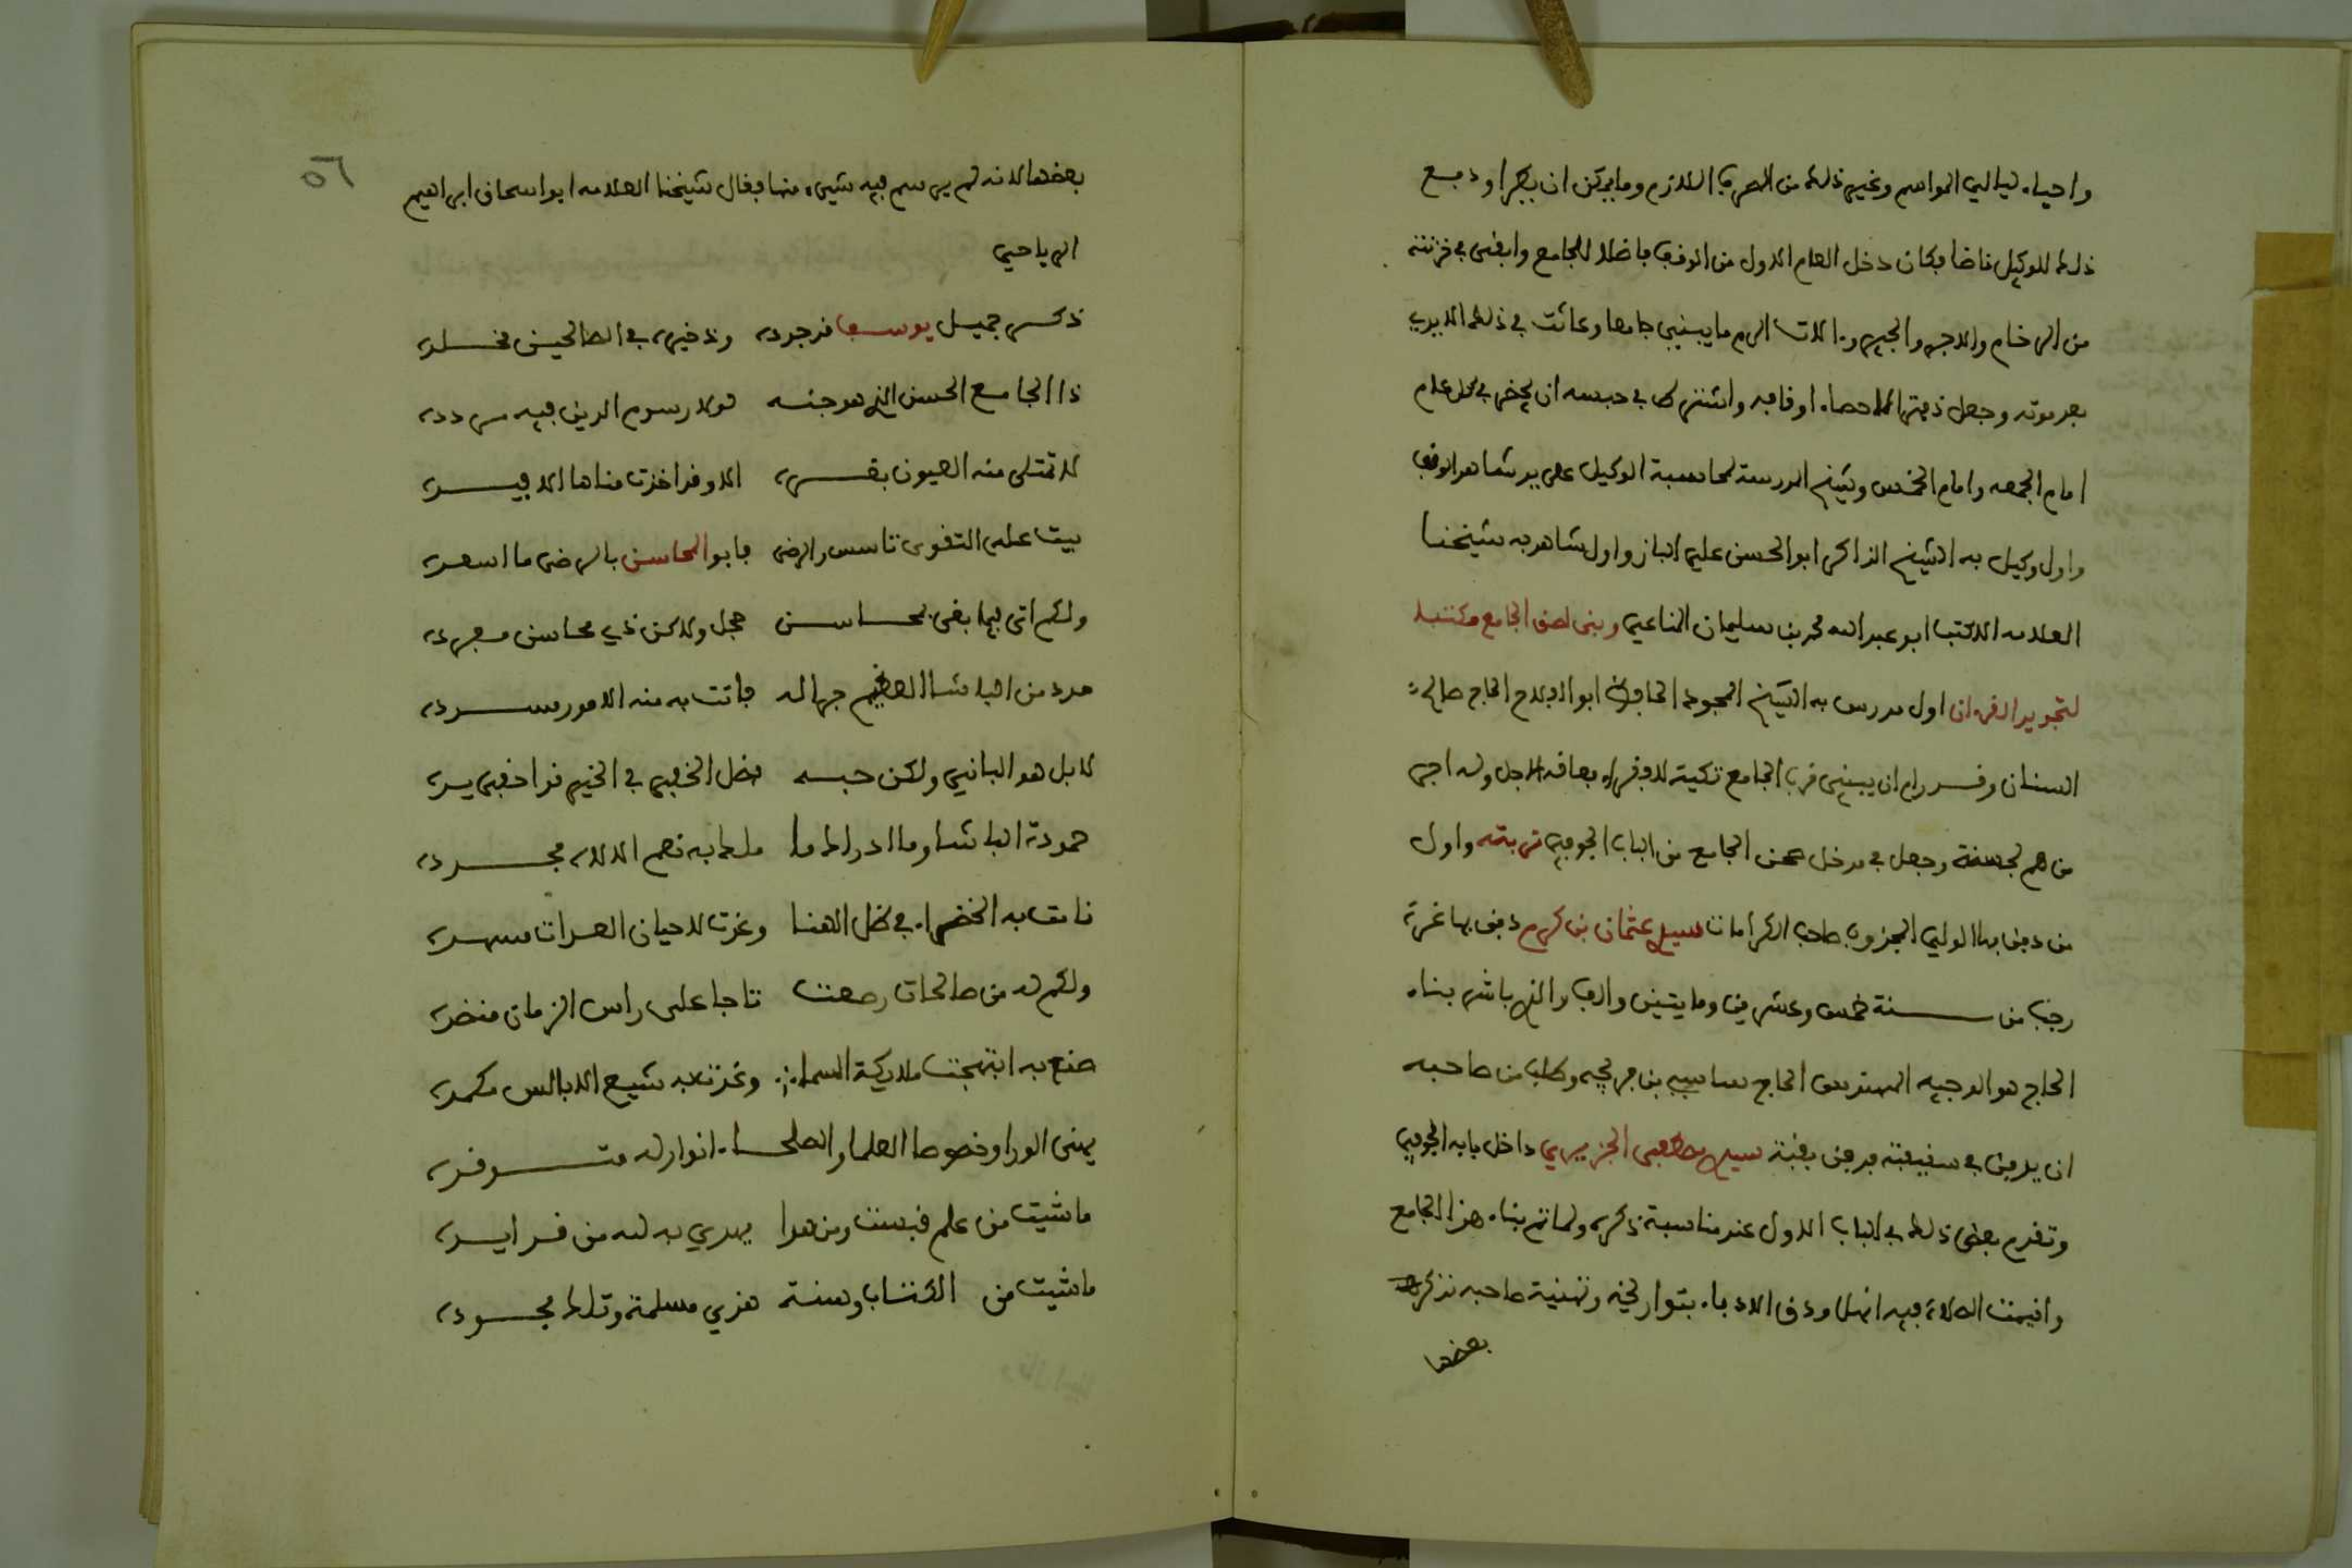 واحياء ليالي المواسم وغير ذلك من الصرف اللازم وما يمكن ان يكرا ودفع
ذلك للوكيل ناضا فكان دخل العام الاول من الوقف فاضلا للجامع وابقى في خزنته
من الرخام والاجر والجير و الات الرم ما يبني جامعا وعاثت في ذلك الايدي
بعد موته وجعل دفترا لاحصاء اوقافه واشترط في حبسه ان يحضر في كل عام
امام الجمعه وامام الخمس وشيخ المدرسة لمحاسبة الوكيل على يد شاهد الوقف
واول وكيل به الشيخ الذاكر ابو الحسن علي الباز واول شاهد به شيخنا
العلامه الاكتب ابو عبد الله محمد بن سليمان المناعي وبنى لصق الجامع مكتبا
لتجويد القرءان اول مدرس به الشيخ المجود الحافظ ابو الافلاح الحاج صالح
السنان وقد رام ان يبني قرب الجامع تكية للفقراء فعاقه الاجل وله اجر
من هم بحسنة وجعل في مدخل صحن الجامع من الباب الجوفي تربته واول
من دفن بها الولي المجذوب صاحب الكرامات سيدي عثمان بن كرم دفن بها غرة
رجب من سنة خمس وعشرين ومايتين والف والذي باشر بناء
الحاج هو الوجيه المهندس الحاج ساسي بن فريجه وطلب من صاحبه
ان يدفن في سقيفته فدفن بقبة سيدي مصطفى الجزيري داخل بابه الجوفي
وتقدم بعض ذلك في الباب الاول عند مناسبة ذكره ولما تم بناء هذا الجامع
واقيمت الصلاة فيه انهل ودق الادباء بتواريخه وتهنية صاحبه نذكر
بعضها
٥٦
بعضها لانه لم يرسم فيه شيء منها فقال شيخنا العلامه ابو اسحاق ابراهيم
الرياحي
ذكر جميل يوسف قد جوده وذخيرة في الصالحين مخلده
ذا الجامع الحسن الذي هو جنه لولا رسوم الدين فيه مردده
لا تمتلى منه العيون بقسره الا وقد اخذت مناها الافيده
بيت على التقوى تاسس والرضى فابو المحاسن بالرضى ما اسعده
ولكم اتى فيما بقى بمحاسن هجل ولاكن ذي محاسن مفرده
مدد من الباشا العظيم جرا له فاتت به منه الامور مسدده
لا بل هو الباني ولكن حبه فضل الخفي في الخير قد اخفى يده
حمودة الباشا وما ادراك ما ملك به نعم الالاه مجدده
نامت به الخضراء في ظل الهنا وغدت لاحيان العدات مسهده
ولكم له من صالحات رصعت تاجا على راس الزمان منضده
صنع به ابتهجت ملايكة السما وغدت به شيع الابالس مكمده
يهنى الورا وخصوصا العلما والصلحاء انوار له متوقده
ما شيت من علم قبست ومن هدا يهدي به لله من قد ايده
ما شيت من الكتاب وسنة هذي مسلمة وتلك مجوده